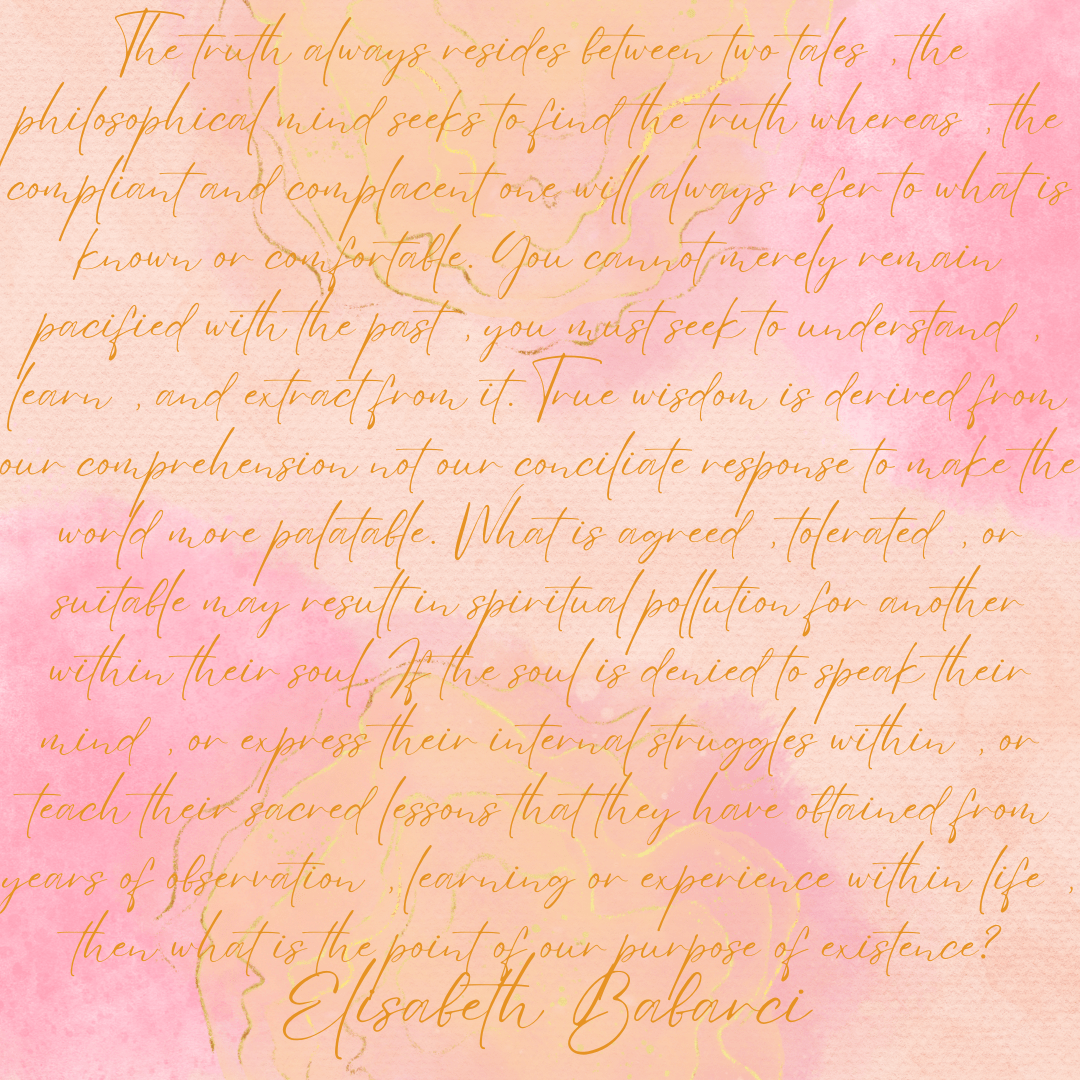 The truth always resides between two tales , the
philosophical mind seeks to find the truth whereas , the
compliant and complacent one will always refer to what is
known or comfortable. You cannot merely remain
pacified with the past , you must seek to understand ,
learn , and extract from it. True wisdom is derived from
our comprehension not our conciliate response to make the
world more palatable. What is agreed , tolerated , or
suitable may result in spiritual pollution for another
within their soul. If the soul is denied to speak their
mind , or express their internal struggles within , or
teach their sacred lessons that they have obtained from
years of observation , learning or experience within life ,
then what is the point of our purpose of existence?
Elisabeth Babarci